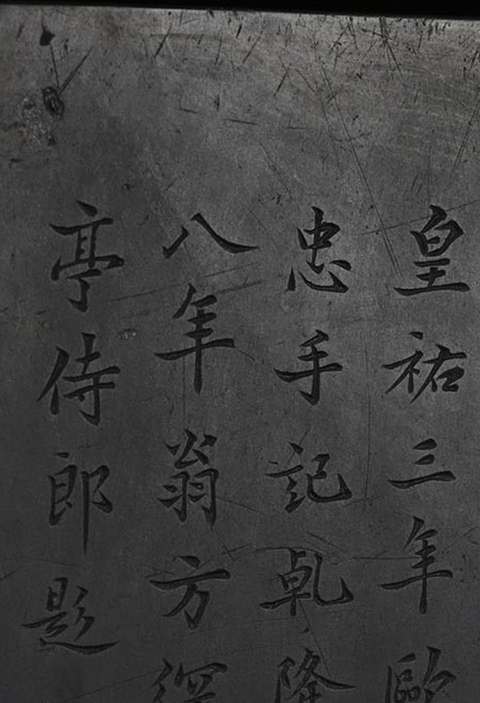 皇祐三年歐
忠手記乾隆
八年翁方深
亭侍郎題